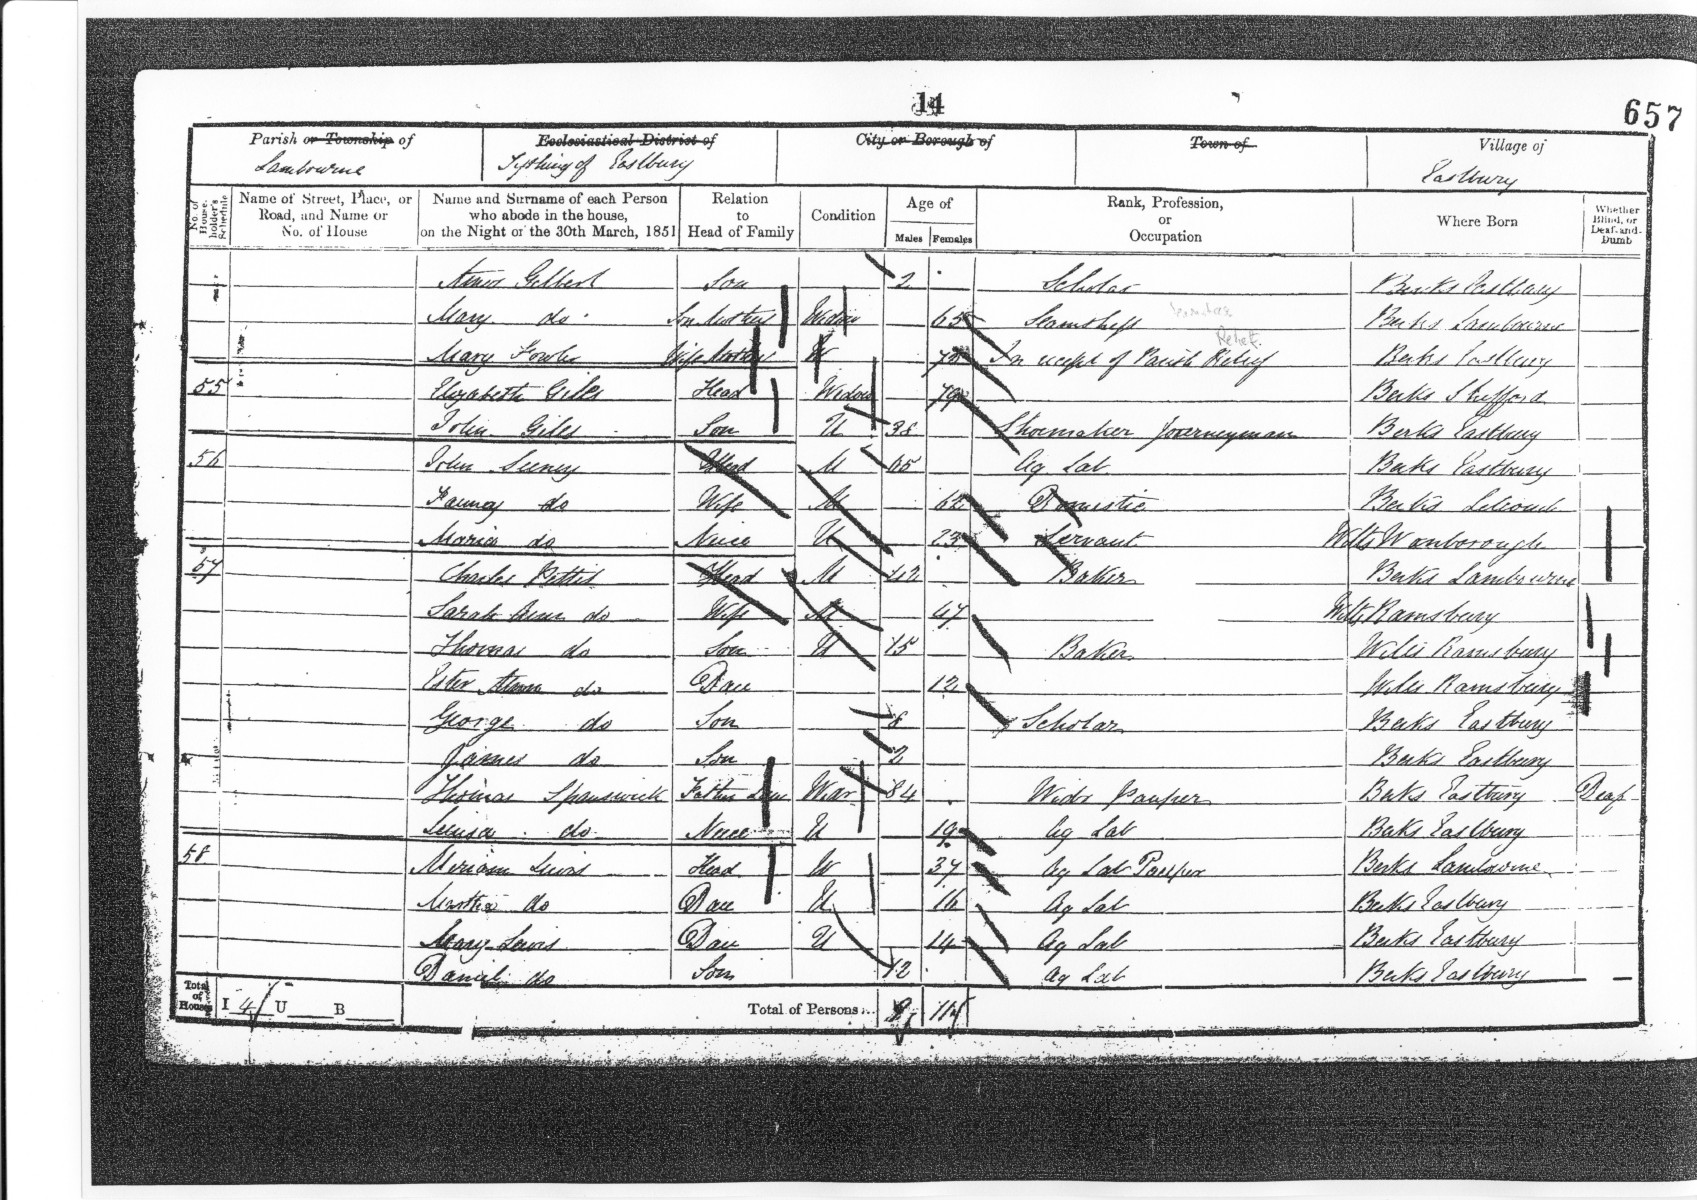 14
657
Parish or Township of
Ecclesiastical District of
City or Borough of
Town of
Village of
Lambourne
Tything of Eastbury
Eastbury
No. of House-holder's Schedule
Name of Street, Place, or Road, and Name or No. of House
Name and Surname of each Person who abode in the house, on the Night of the 30th March, 1851
Relation to Head of Family
Condition
Age of
Males
Females
Rank, Profession, or Occupation
Where Born
Whether Blind, or Deaf-and-Dumb
Gilbert Son 2 Scholar Berks Eastbury
Mary do Widow 65 Berks Lambourne
Mary W In receipt of Parish Relief Berks Eastbury
Relief
55 Elizabeth Giles Head Widow 79 Berks Shefford
John Giles Son U 38 Shoemaker Journeyman Berks Eastbury
56 John Head M 65 Ag Lab Berks Eastbury
Fanney do Wife M 62 Domestic Berks
Maria do Niece U 23 Servant Wilts Wanborough
57 Charles Head M 42 Baker Berks Lambourne
Sarah Ann do Wife M 47 Wilts Ramsbury
Thomas do Son U 15 Baker Wilts Ramsbury
Ester Ann do Dau 12 Wilts Ramsbury
George do Son 8 Scholar Berks Eastbury
James do Son 2 Berks Eastbury
Thomas Spanswick Father Law 84 Pauper Berks Eastbury Deaf
do Niece U 19 Ag Lab Berks Eastbury
58 Miriam Lewis Head W 37 Ag Lab Pauper Berks Lambourne
Martha do Dau U 16 Ag Lab Berks Eastbury
Mary Lewis Dau U 14 Ag Lab Berks Eastbury
Daniel do Son 12 Ag Lab Berks Eastbury
Total of Houses I 4 U B
Total of Persons... 9 11